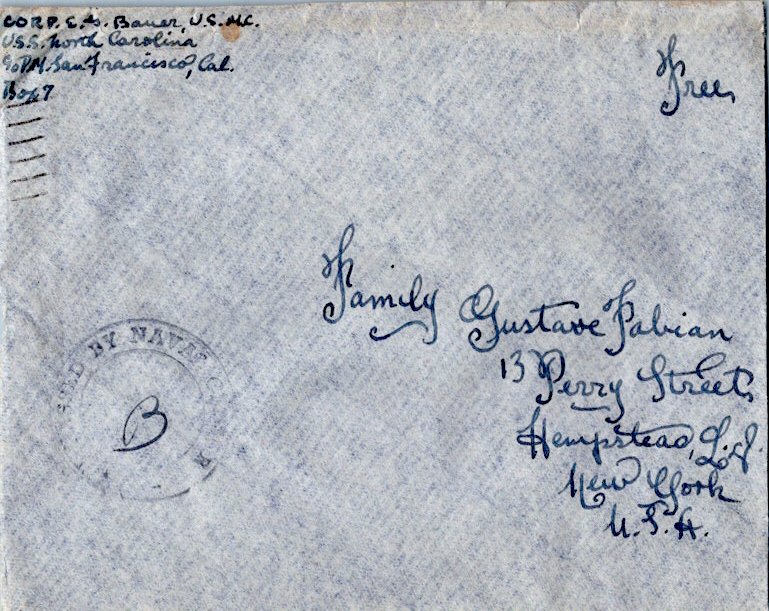 CORP. E. G. Bauer, U.S.M.C.
U.S.S. North Carolina
℅ P.M. San Francisco, Cal.
Box 7
Free
Family Gustave Fabian
13 Perry Street
Hempstead, L.I.
New York
U.S.A.
BY NAVAL
B